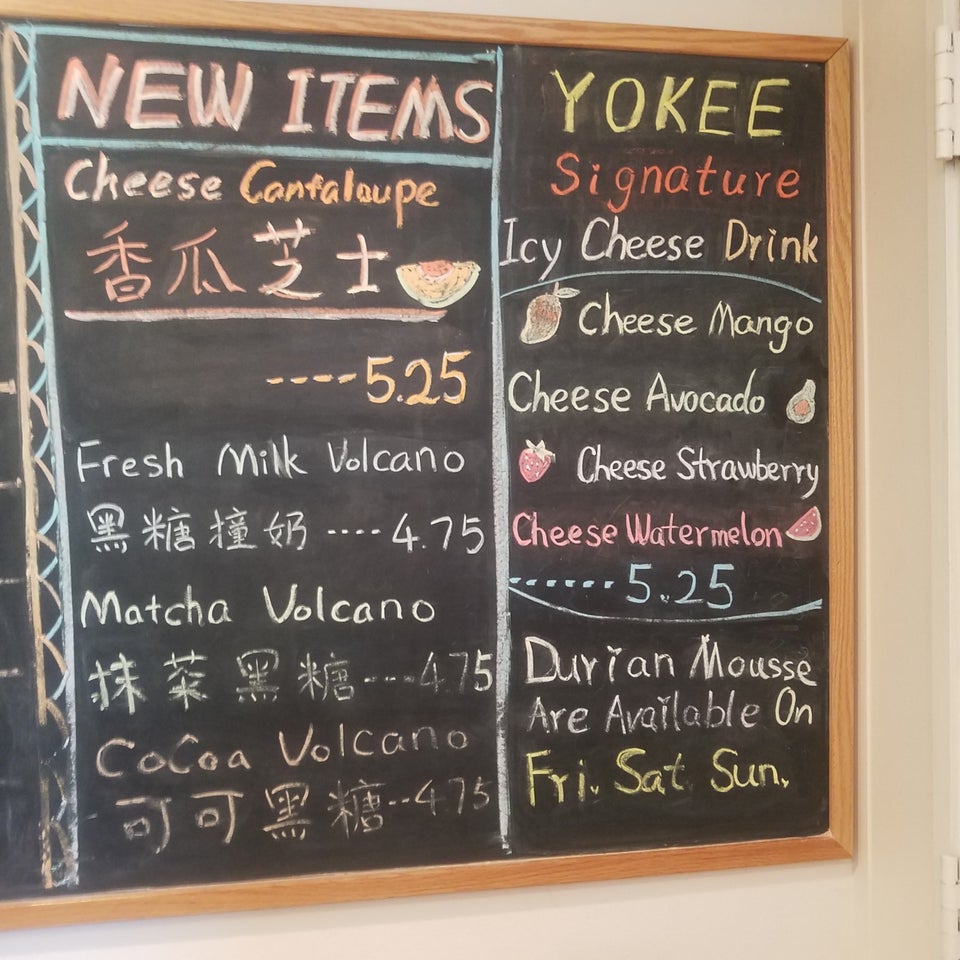 NEW ITEMS
Cheese Cantaloupe
香瓜芝士
----5.25
Fresh Milk Volcano
黑糖撞奶 ----4.75
Matcha Volcano
抹茶黑糖---4.75
CoCoa Volcano
可可黑糖--4.75
YOKEE
Signature
Icy Cheese Drink
Cheese Mango
Cheese Avocado
Cheese Strawberry
Cheese Watermelon
------5.25
Durian Mousse
Are Available On
Fri. Sat Sun.